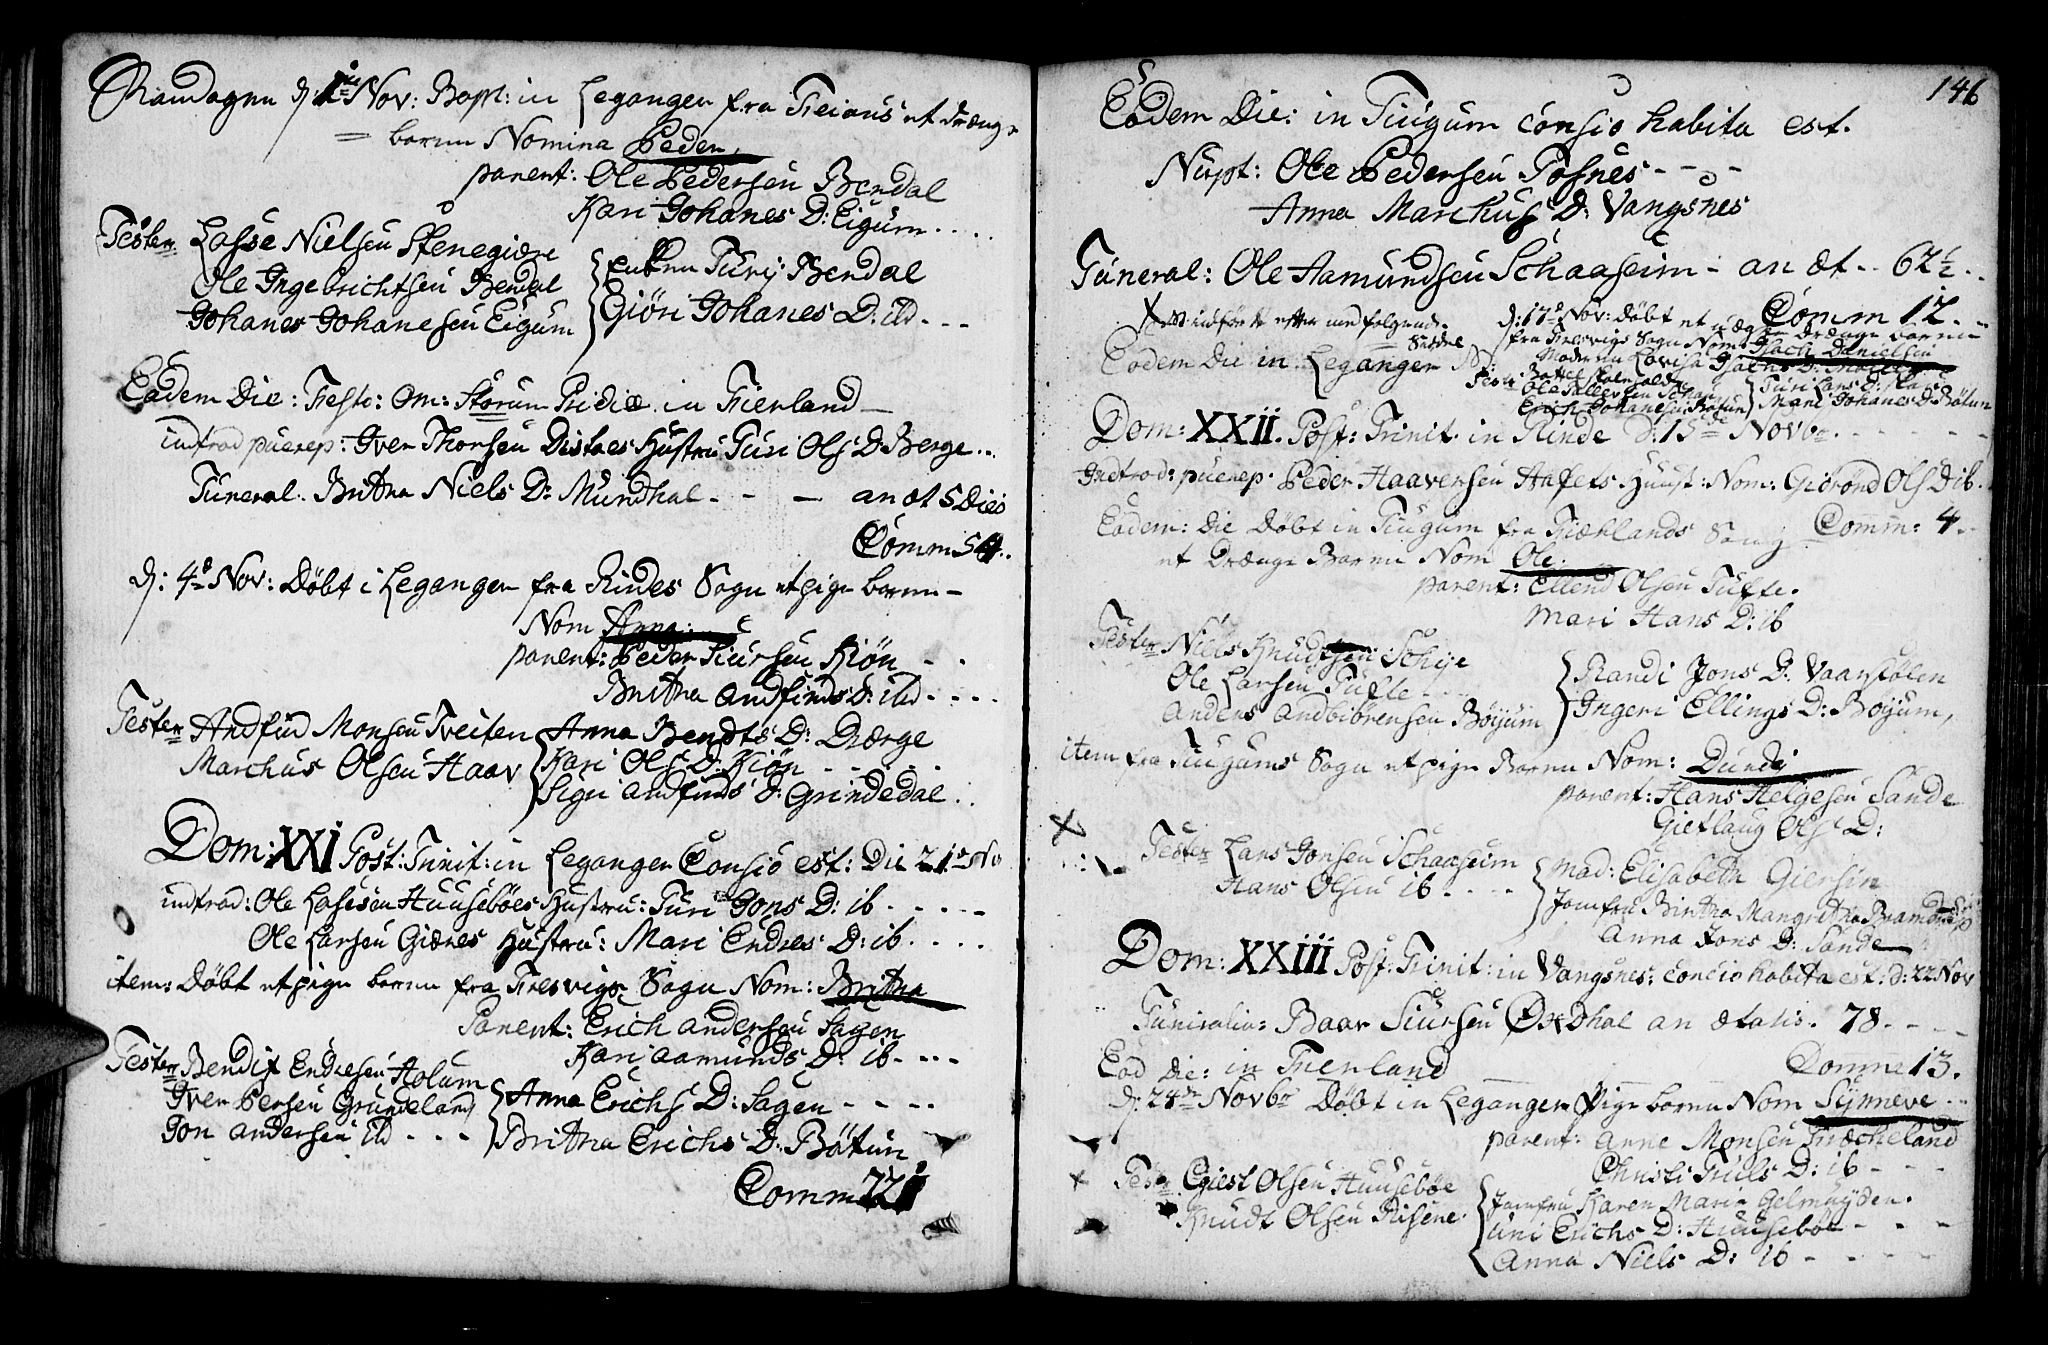 Mandagen d: 1te Nov: Bapt: in Leganger fra Freious et drænge
= baren Nomina Peder,
parent: Ole Pedersen Bendal
Kari Johanes D: Eigum....
Tester Lasse Nielsen Stenegiære
Ole Ingebrichtsen Bendal
Johanes Johanesen Eigum
Enken Turi Bendal
Giöri Johanes D: ibd ---
Eadem Die: Festo: Om: Storum Pridiæ in Fierland —
indtrod puerep: Iver Thorsen Distaes Hustru Turi Ols D: Berge...
Funeral: Britha Niels D: Mundhal - - — an æt 5 Dies
Comm 54..
d: 4de Nov: Döbt i Leganger fra Rindes Sogn et pige baren -
Nom Anna:
parent: Peder Siursen Kiön - -
Britha Andfinds D: ibd ----
Tester Andfind Monsen Tveiten
Marchus Olsen Haav
Anna Bendts D: Diærge
Kari Ols D: Kiön - - - -
Sigri Andfinds D: Grindedal..
Dom: XXI Post: Trinit: in Leganger Consio est: Die 21de No
indtrod: Ole Lassesen Huusebÿes Hustru: Turi Jons D: ib -----
Ole Larsen Giæres Hustru: Mari Endres D: ib. ....
item: Döbt et pige baren fra Fresvigs Sogn Nom: Britha
Parent: Erich Andersen Sagen
Kari Aamunds D: ib- ---
Tester Bendix Endresen Holum
Iver Persen Grundeland
Jon Andersen ibd - - -
Anna Erichs D: Sagen - - - -
Britha Erichs D: Bötun
Comm 22
146
Eodem Die: in Tiugum consio habita est.
Nupt: Ole Pedersen Fosnes - - -
Anna Marchus D: Vangsnes
Funeral: Ole Aamundsen Schaaseim - an æt.. 62½..
Comm 12. ..
indfört efter nedfolgende
d: 17de Nov: Döbt et uægte drænge baren
fra Fresvigs Sogn Nom: Isach Danielsen
Eodem Die in Leganger
Moderen Lovisa
Ole
Erich Johanesen Bötun
Turi Lars D:
Mari Johanes D: Bötun
Dom: XXII. Post: Trinit. in Rinde d: 15de Novbr. - - - - -
Indtrod: puerep: Peder Haaversen Hafets Huust: Nom: Giörond Ols D: ib.
Eadem: Die Döbt in Tiugum fra Fiærlands Sogn Comm: 4..
et Drænge Baren Nom Ole:
parent: Ellend Olsen Tufte.
Mari Hans D: ib
Tester Niels Knudtsen Schije
Ole Larsen Tufte - - -
Anders Andbiörensen Böÿum
Randi Jons D: Vaarstölen
Ingeri Ellings D: Böyum,
item fra Tiugums Sogn et pige Baren Nom: Dundi
parent: Hans Helgesen Sande
Gietlaug Ols D:
Tester Lars Jonsen Schaaseim
Hans Olsen ib. - - - -
Mad: Elisabeth Giersin
Jomfru Birtha Mangretha
Anna Jons D: Sande
Dom: XXIII Post: Trinit: in Vangsnes: concio habita est: d: 22 Nov
Funiralia: Baar Siursen Oxdhal an ætatis. 78. - - - -
Eod Die: in Fierland — — Comme 13.
d: 24de Novbr Döbt in Leganger Pige baren Nom Synneve ...
parent: Arne Monsen Frækeland
Christi Truls D: ib - - -
Test: Giest Olsen Huusebÿe
Knudt Olsen Risene.
Jomfru Karen Marie Gelmuyden.
Uni Erichs D: Huusebÿe - - -
Anna Niels D: ib - - - -